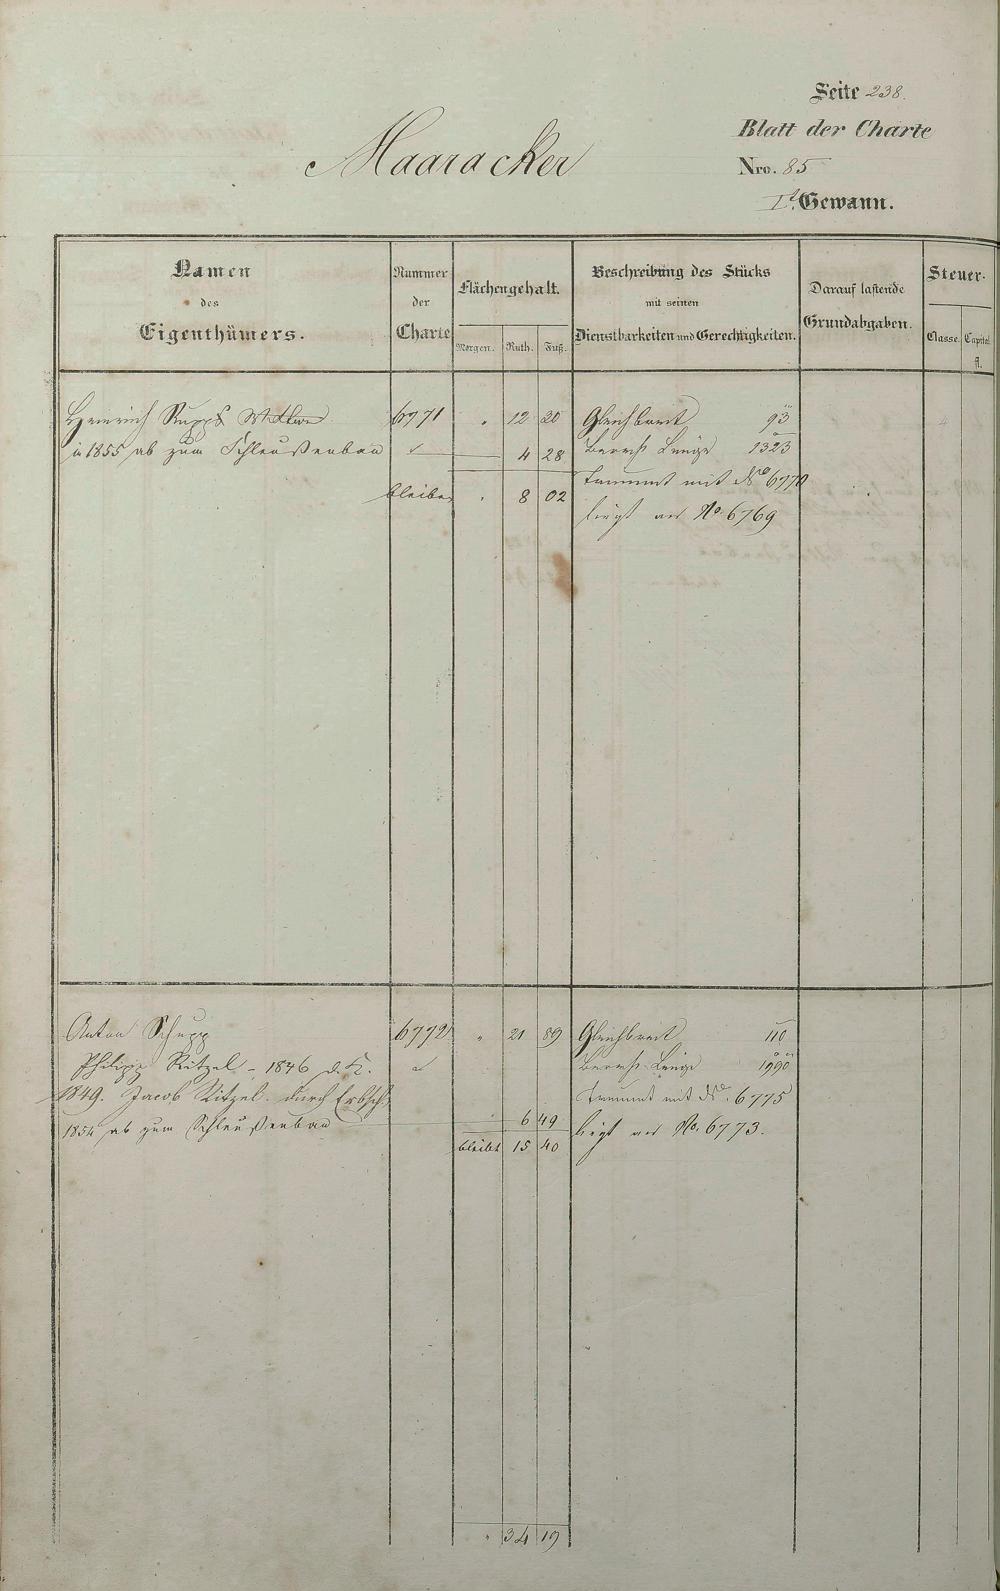 Seite 238.
Maaracker
Blatt der Charte
Nro. 85
Iᵗ Gewann.
Namen
des
Eigenthümers.
Nummer
der
Charte
Flächengehalt.
Morgen. Ruth. Fuß.
Beschreibung des Stücks
mit seinen
Dienstbarkeiten und Gerechtigkeiten.
Darauf lastende
Grundabgaben.
Steuer-
Classe. Capital.
fl.
Heinrich Rupps Wittwe 6771 " 12 20 Gleichbreit 93
in 1855 ab zum Schleußenbau 4 28 Länge 1323
bleiben " 8 02 mit No 6770
liegt an No. 6769
Anton Schupp 6772 " 21 89 Gleichbreit 110
Philipp Ritzel - 1846 d. K. Länge 1990
1849. Jacob Ritzel. durch Erbsch. mit No. 6775
1854 ab zum Schleußenbau 6 49 liegt an No. 6773.
bleibt 15 40
" 34 19